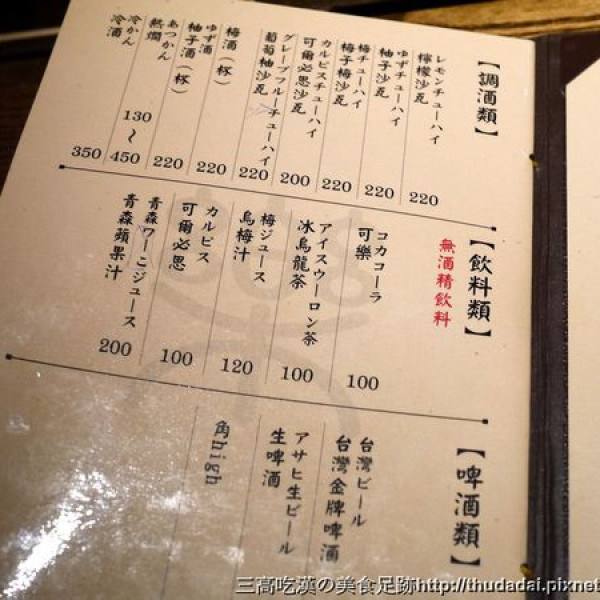 【調酒類】
レモンチューハイ
檸檬沙瓦
220
ゆずチューハイ
柚子沙瓦
220
梅チューハイ
梅子梅沙瓦
220
カルピスチューハイ
可爾必思沙瓦
200
グレープフルーチューハイ
葡萄柚沙瓦
220
梅酒(杯)
220
ゆず酒
柚子酒(杯)
220
あつかん
熱燗
130~450
冷かん
冷酒
350
【飲料類】
無酒精飲料
コカコーラ
可樂
100
アイスウーロン茶
冰烏龍茶
100
梅ジュース
烏梅汁
120
カルピス
可爾必思
100
青森りんごジュース
青森蘋果汁
200
【啤酒類】
台灣ビール
台灣金牌啤酒
アサヒ生ビール
生啤酒
角high
三高吃漢の美食足跡http://thudadai.pixnet